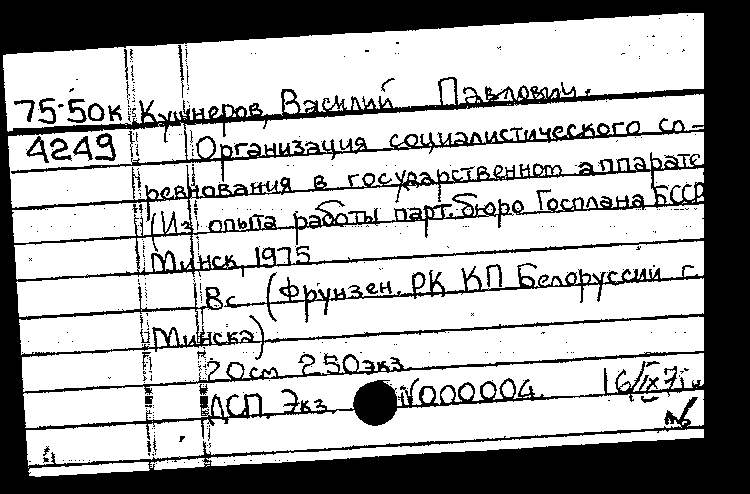 75-50к Кушнеров, Василий Павлович.
4249 Организация социалистического со-
ревнования в государственном аппарате
(Из опыта работы парт. бюро Госплана БССР
Минск, 1975
8с (Фрунзен. РК КП Белоруссии г.
Минска)
20см 250экз.
ДСП. Экз. N000004. 16/IX